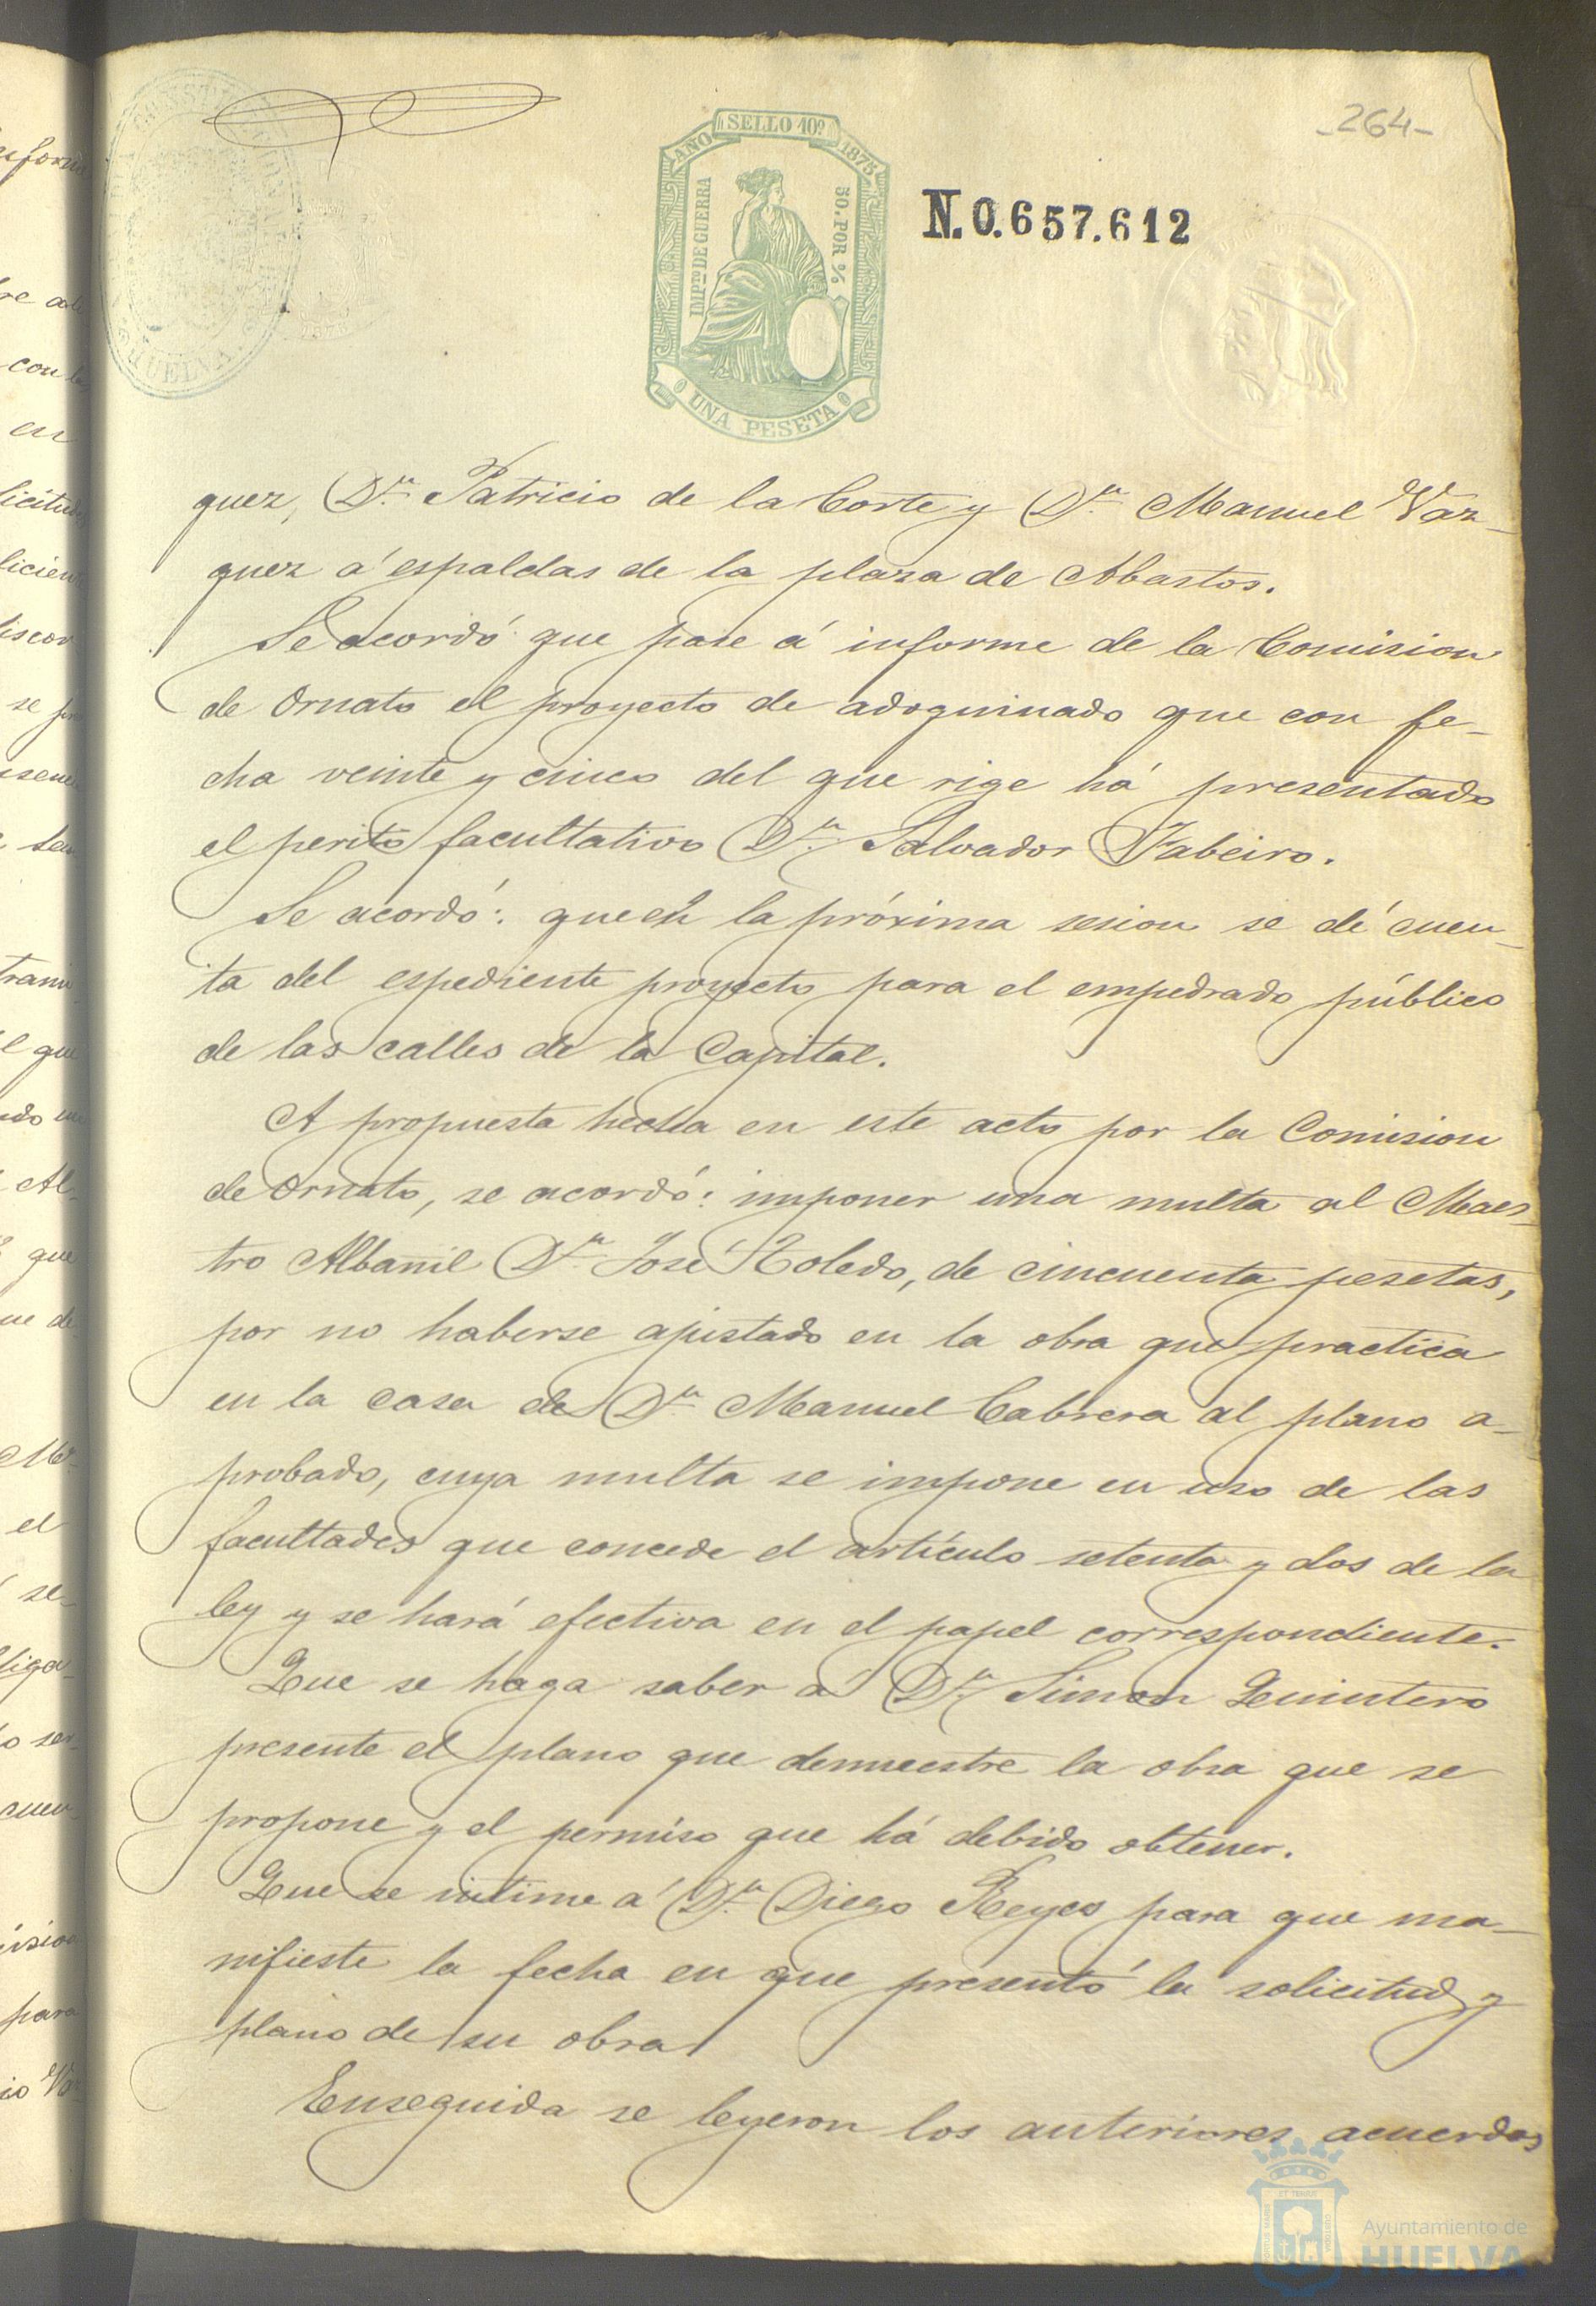 -264-
AÑO SELLO 10º 1875
IMPTO DE GUERRA
50. POR %
0 UNA PESETA 0
N.0.657.612
HUELVA
guez, Dn. Patricio de la Corte y Dn. Manuel Váz-
quez á espaldas de la plaza de Abastos.
Se acordó que pase á informe de la Comision
de Ornato el proyecto de adoquinado que con fe-
cha veinte y cinco del que rige há presentado
el perito facultativo Dn. Salvador Fabeiro.
Se acordó: que en la próxima sesion se dé cuen-
ta del espediente proyecto para el empedrado público
de las calles de la Capital.
A propuesta hecha en este acto por la Comision
de Ornato, se acordó: imponer una multa al Maes-
tro Albañil Dn. José Toledo, de cincuenta pesetas,
por no haberse ajustado en la obra que practica
en la casa de Dn. Manuel Cabrera al plano a-
probado, cuya multa se impone en uso de las
facultades que concede el artículo setenta y dos de la
ley y se hará efectiva en el papel correspondiente.
Que se haga saber a Dn. Simon Quintero
presente el plano que demuestre la obra que se
propone y el permiso que há debido obtener.
Que se intime á Dn. Diego Reyes para que ma-
nifieste la fecha en que presentó la solicitud y
plano de su obra
Enseguida se leyeron los anteriores acuerdos
Ayuntamiento de
HUELVA